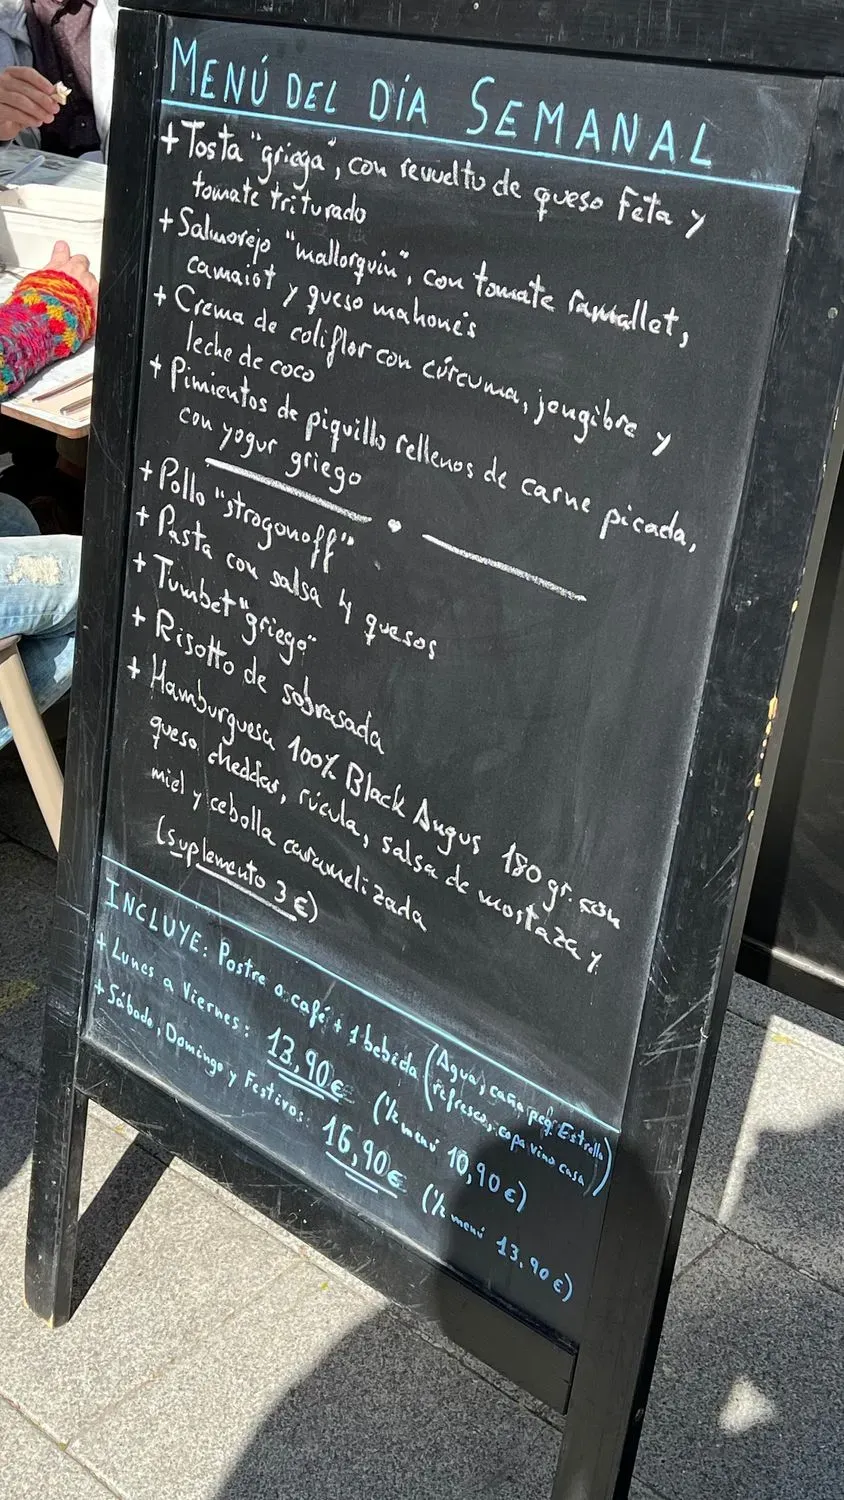 MENÚ DEL DÍA SEMANAL
+ Tosta "griega", con revuelto de queso Feta y
tomate triturado
+ Salmorejo "mallorquín", con tomate ramallet,
camaiot y queso mahonés
+ Crema de coliflor con cúrcuma, jengibre y
leche de coco
+ Pimientos de piquillo rellenos de carne picada,
con yogur griego
+ Pollo "strogonoff"
+ Pasta con salsa 4 quesos
+ Tumbet "griego"
+ Risotto de sobrasada
+ Hamburguesa 100% Black Angus 180 gr. con
queso cheddar, rúcula, salsa de mostaza y
miel y cebolla caramelizada
(suplemento 3 €)
INCLUYE: Postre o café + 1 bebida (Agua, caña peq. Estrella
refresco, copa vino casa)
+ Lunes a Viernes: 13,90€ (½ menú 10,90€)
+ Sábado, Domingo y Festivos: 16,90€ (½ menú 13,90€)